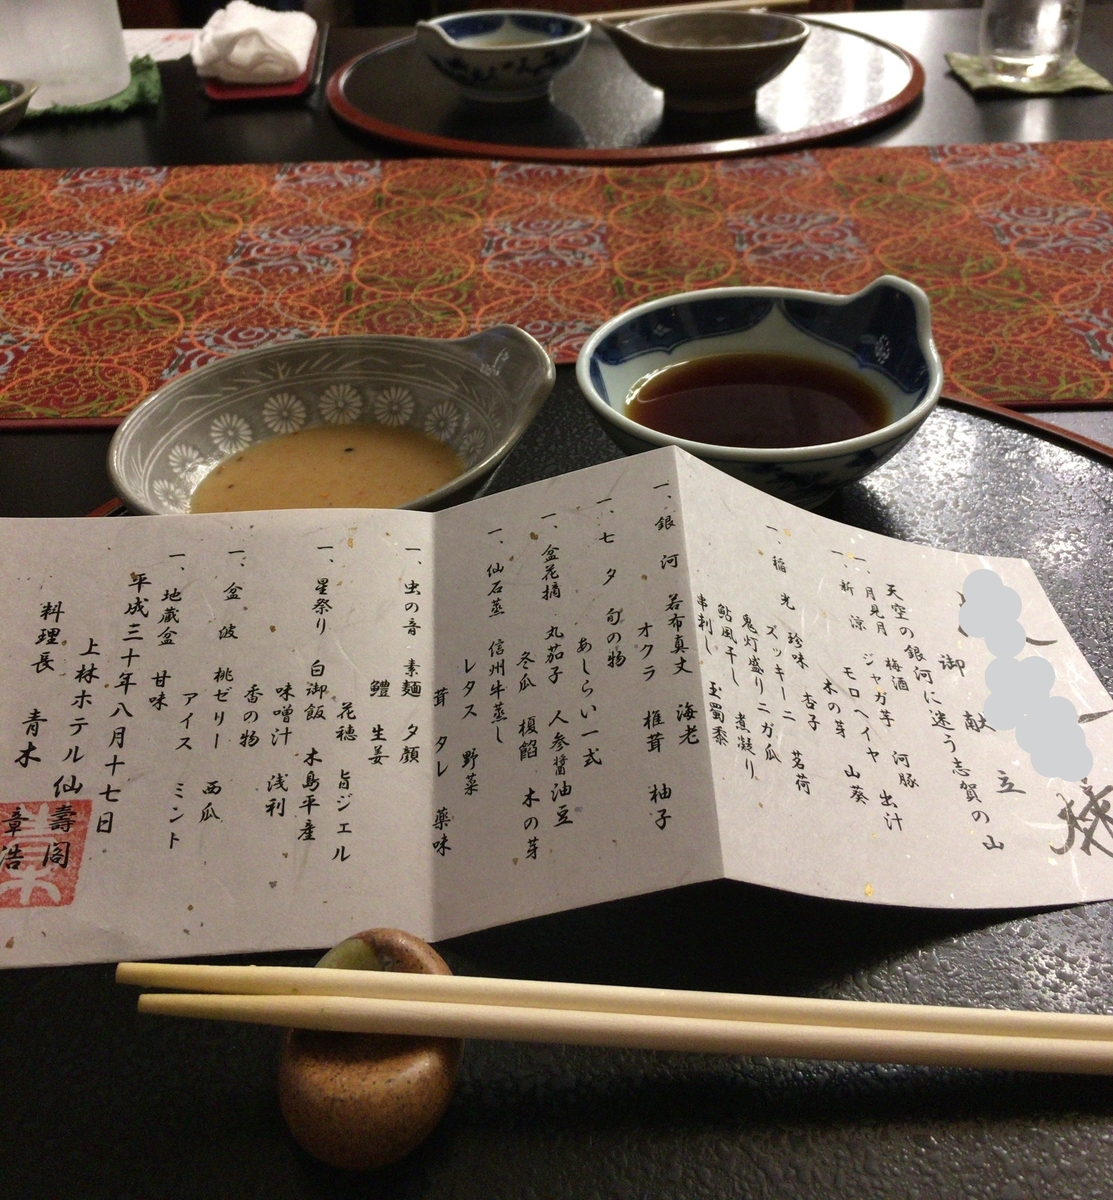 御献立
天空の銀河に迷う志賀の山
一、月見月 梅酒 河豚
ジャガ芋 出汁
一、新涼 モロヘイヤ 山葵
木の芽
一、稲光 珍味 杏子 茗荷
ズッキーニ
鬼灯盛り ニガ瓜 煮凝り
鮎風干し
串刺し 玉蜀黍
一、銀河 若布真丈 海老
オクラ 椎茸 柚子
一、七夕 旬の物
あしらい一式
一、盆花摘 丸茄子 人参醤油豆
冬瓜 榎餡 木の芽
一、仙石蒸 信州牛蒸し
レタス 野菜
茸 タレ 薬味
一、虫の音 素麺 夕顔
鱧 生姜
花穂 旨ジェル
一、星祭り 白御飯 木島平産
味噌汁 浅利
香の物
一、盆波 桃ゼリー 西瓜
アイス ミント
一、地蔵盆 甘味
平成三十年八月十七日
上林ホテル仙壽閣
料理長 青木 章浩